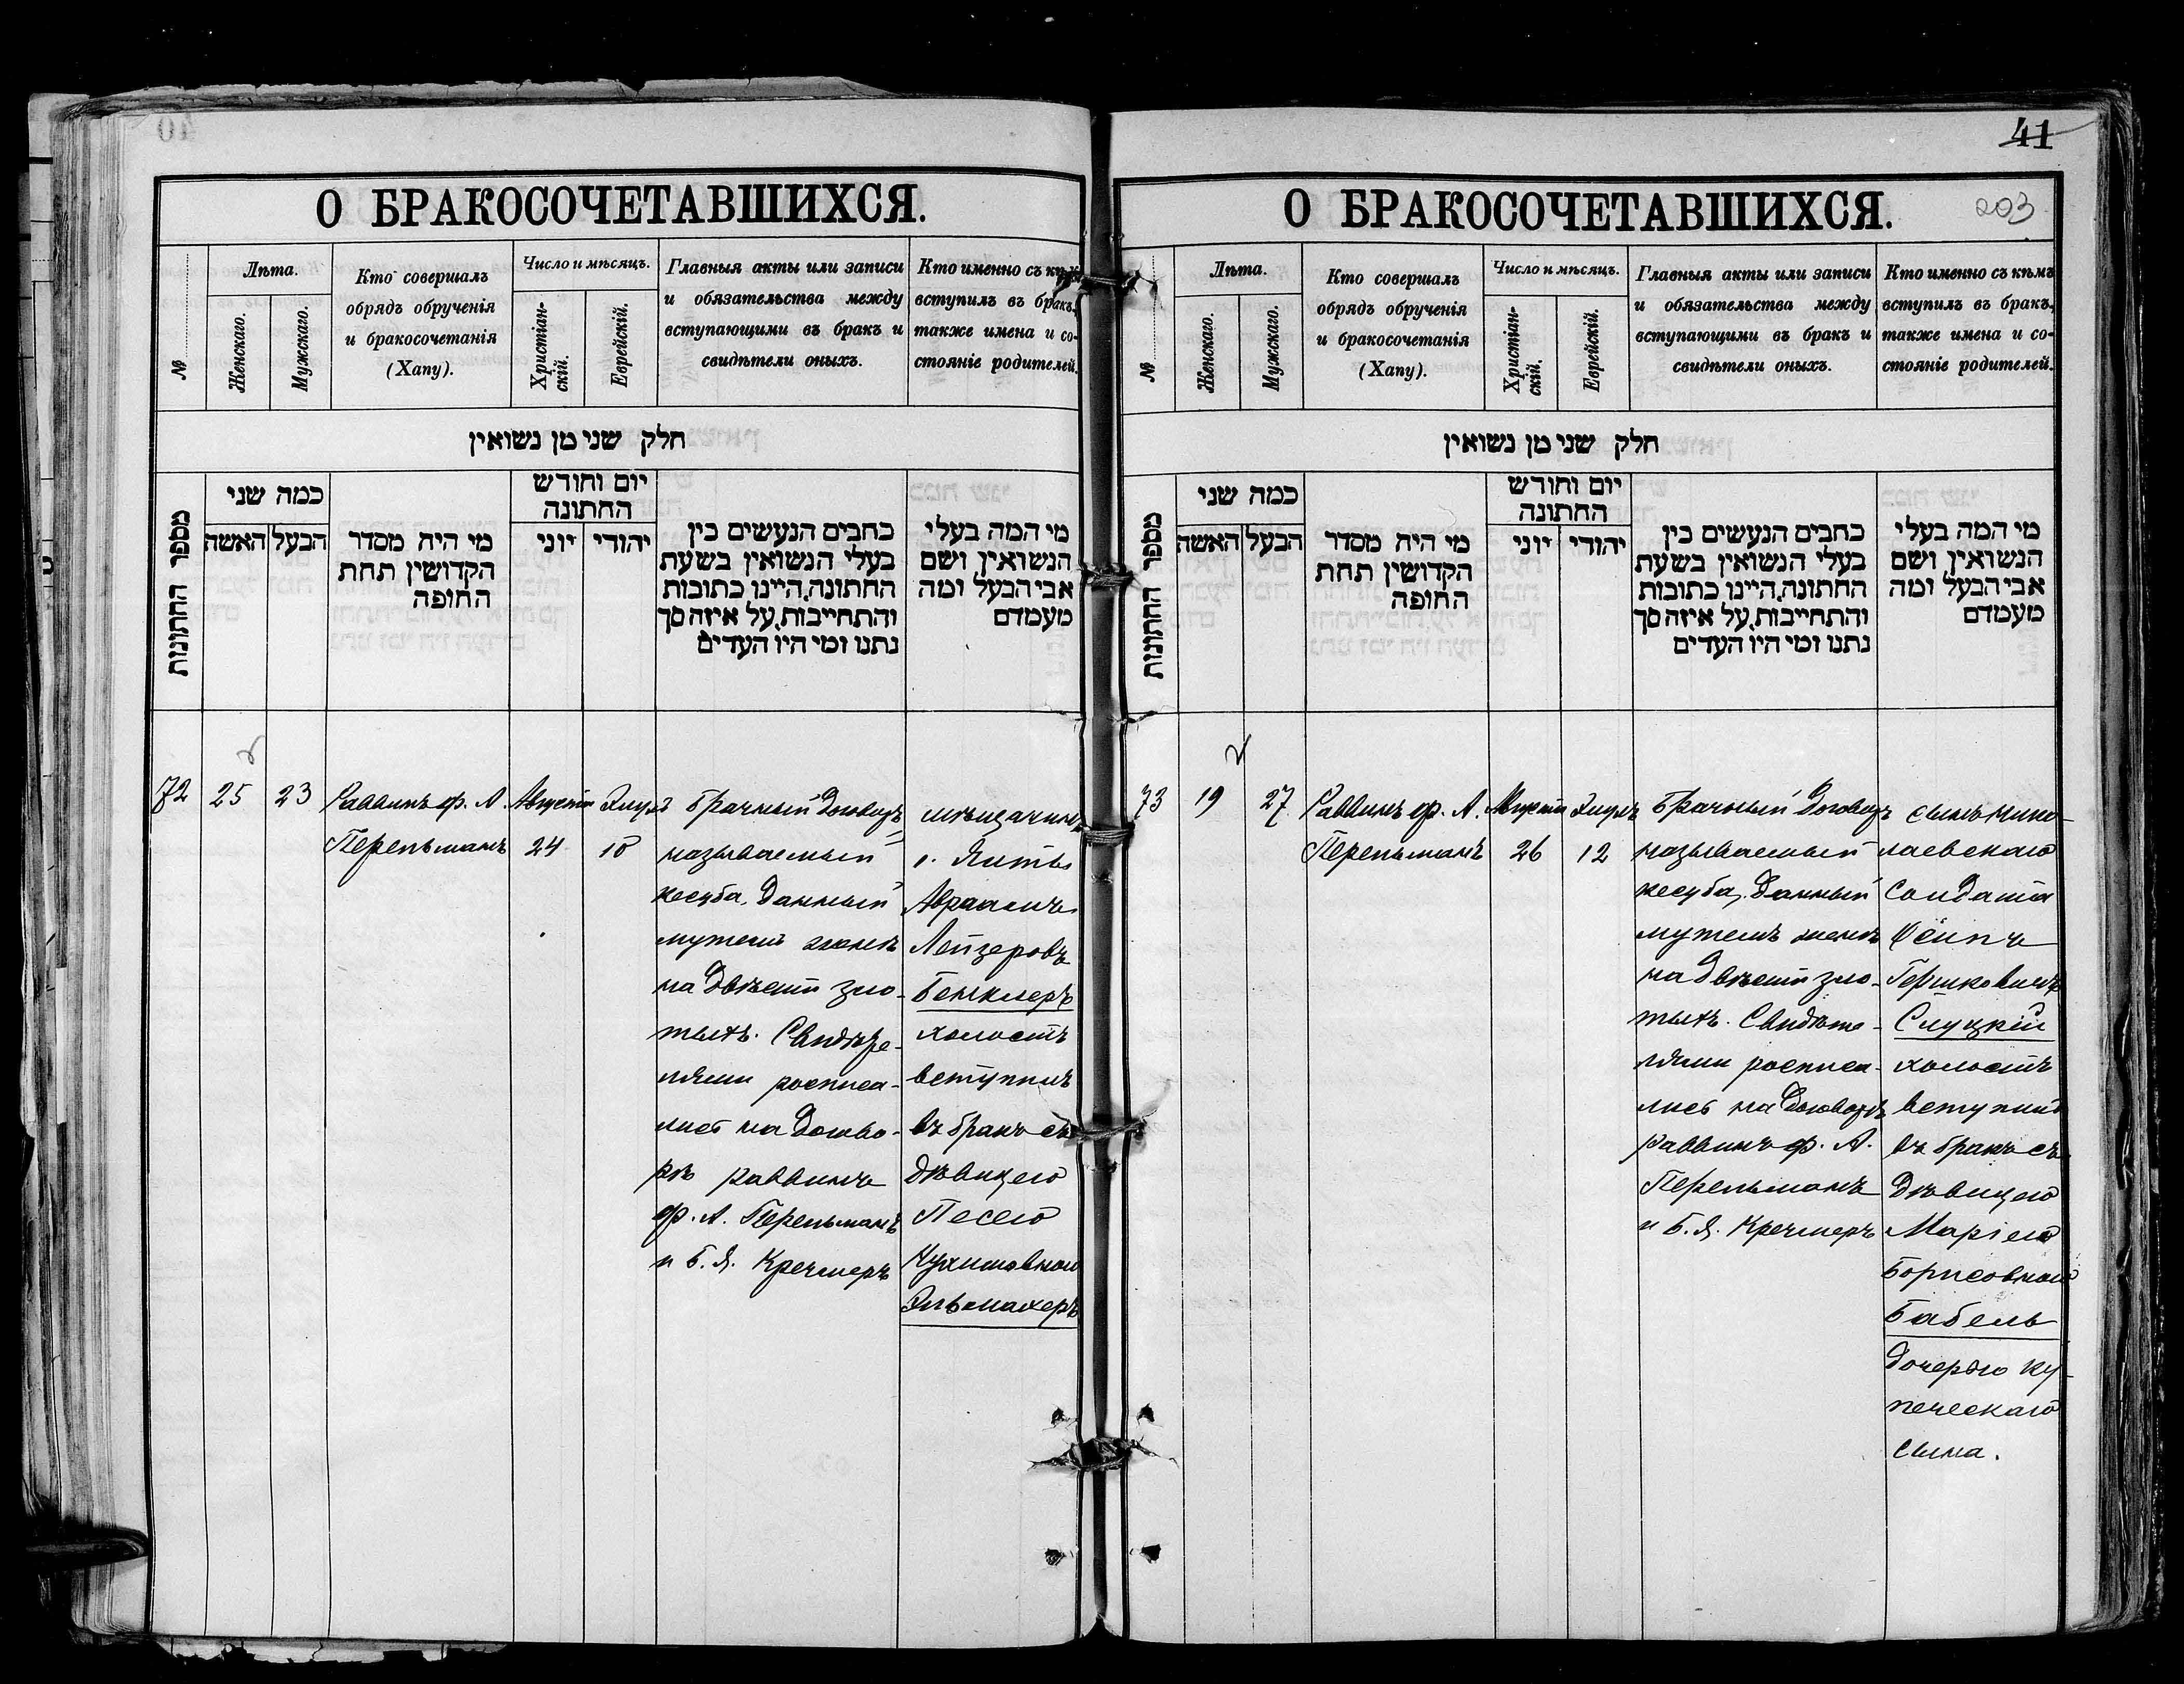 41
203
О БРАКОСОЧЕТАВШИХСЯ.
№
Лѣта.
Женскаго.
Мужскаго.
Кто совершалъ
обрядъ обрученія
и бракосочетанія
(Хапу).
Число и мѣсяцъ.
Христіан-
скій.
Еврейскій.
Главныя акты или записи
и обязательства между
вступающими въ бракъ и
свидѣтели оныхъ.
Кто именно съ кѣмъ
вступилъ въ бракъ,
также имена и со-
стояніе родителей.
חלק שני מן נשואין
מספר החתונות
כמה שני
הבעל האשה
מי היה מסדר
הקדושין תחת
החופה
יום וחודש
החתונה
יהודי יוני
כתבים הנעשים בין
בעלי הנשואין בשעת
החתונה, היינו כתובות
והתחייבות, על איזה סך
נתנו ומי היו העדים
מי המה בעלי
הנשואין ושם
אבי הבעל ומה
מעמדם
72
25
23
Раввинъ ф. А.
Перельманъ
Августа
24
Элулъ
10
Брачный договоръ
называемый
кесуба, данный
мужемъ женѣ
на двѣсти зло-
тыхъ. Свидѣте-
лями росписа-
лись на догово-
рѣ раввинъ
ф. А. Перельманъ
и Б. Я. Кречмеръ
мѣщанинъ
Авраамъ
Лейзеровъ
Бенклеръ
холостъ
вступилъ
въ бракъ съ
дѣвицею
Песею
Нухимовною
Эльмахеръ
О БРАКОСОЧЕТАВШИХСЯ.
№
Лѣта.
Женскаго.
Мужскаго.
Кто совершалъ
обрядъ обрученія
и бракосочетанія
(Хапу).
Число и мѣсяцъ.
Христіан-
скій.
Еврейскій.
Главныя акты или записи
и обязательства между
вступающими въ бракъ и
свидѣтели оныхъ.
Кто именно съ кѣмъ
вступилъ въ бракъ,
также имена и со-
стояніе родителей.
חלק שני מן נשואין
מספר החתונות
כמה שני
הבעל האשה
מי היה מסדר
הקדושין תחת
החופה
יום וחודש
החתונה
יהודי יוני
כתבים הנעשים בין
בעלי הנשואין בשעת
החתונה, היינו כתובות
והתחייבות, על איזה סך
נתנו ומי היו העדים
מי המה בעלי
הנשואין ושם
אבי הבעל ומה
מעמדם
73
19
27
Раввинъ ф. А.
Перельманъ
Августа
26
Элулъ
12
Брачный договоръ
называемый
кесуба, данный
мужемъ женѣ
на двѣсти зло-
тыхъ. Свидѣте-
лями росписа-
лись на договорѣ
раввинъ ф. А.
Перельманъ
и Б. Я. Кречмеръ
сынъ Нико-
лаевскаго
солдата
Осипъ
Гершковичъ
Слуцкій
холостъ
вступилъ
въ бракъ съ
дѣвицею
Маріею
Борисовною
Бабель
дочерью ку-
печескаго
сына.